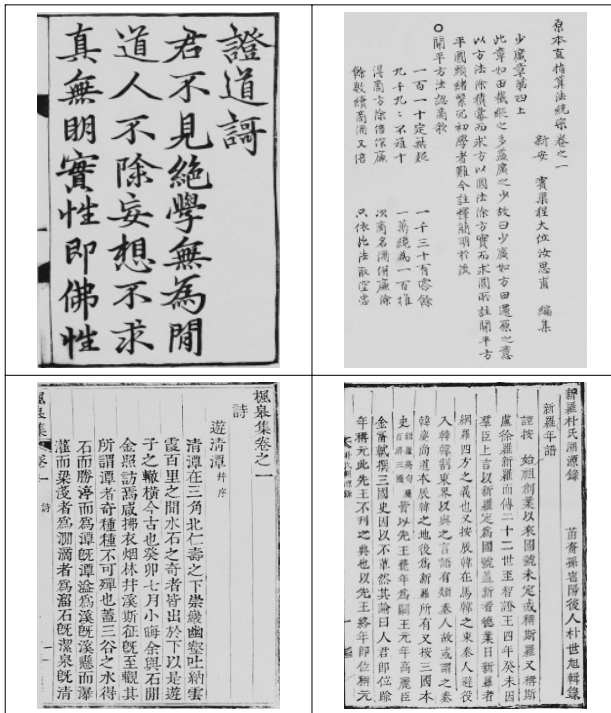 證道謌
君不見絕學無為閒
道人不除妄想不求
真無明實性即佛性
原本直指算法統宗卷之一
新安 賓渠程大位汝思甫 編集
少廣章第四上
此章如田截縱之多益廣之少故曰少廣如方田還原之意
以方法除積冪而求方以圓法除方實而求圓所註開平方
平圓頗緒繁冗初學者難今註釋簡明於後
○開平方法認商歌
一百一十定無疑 一千三十有零餘
九千九九不離十 一萬纔為一百推
得商方除倍作廉 次商名隅併廉除
餘數續商隅又倍 只依此法取空虛
楓皐集卷之一
詩
遊清潭 幷序
清潭在三角北仁壽之下崇巘幽壑吐納雲
霞百里之間水石之奇者皆出於下以是遊
子之轍橫今古也癸卯七月小晦余與石閒
金熙訪萬咸拂衣烟林幷溪斯征旣至觀其
所謂潭者奇種種不可殫也蓋三谷之水得
石而勝渟而爲潭旣潭溢爲溪旣溪懸而瀑
灌而梁者爲滴者爲溜石旣潔泉旣清
楓皐集 卷一 詩 一
新羅杜氏淵源錄 苗裔孫密陽後人朴世旭輯錄
新羅年譜
謹按 始祖創業以來國號未定或稱斯羅又稱斯
盧徐羅新羅而傳二十二世至智證王四年癸未因
羣臣上言以新羅定為國號蓋新者德業日新羅者
網羅四方之義也又按辰韓在馬韓之東秦人避役
入韓韓割東界以與之言語有類秦人故或謂之秦
韓姿尚道本辰韓之地後為新羅所有又按三國本
史 皆以先王薨年為嗣王元年高麗臣
金富軾撰三國史因以不革然其論曰人君即位踰
年稱元此王不刊之典也以先王終年即位稱元